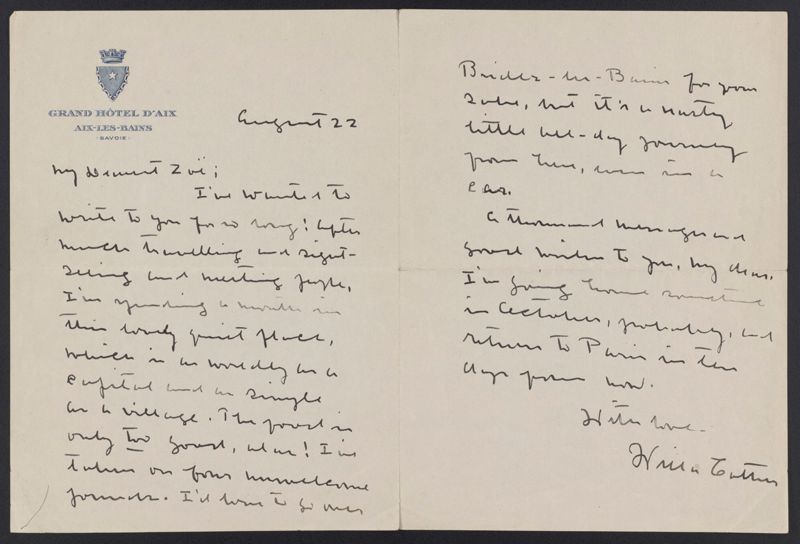 GRAND HÔTEL D'AIX
AIX-LES-BAINS
SAVOIE
August 22
My Dearest Zoë;
I've wanted to
write to you for so long! After
much travelling and sight-
seeing and meeting people,
I'm spending a month in
this lovely quiet place,
which is as worldly as a
capital and as simple
as a village. The food is
only too good, alas! I've
taken on four unwelcome
pounds. I'd love to go over
Brides-les-Bains for your
sake, but it's a nasty
little all-day journey
from here, even in a
car.
A thousand messages and
good wishes to you, my dear.
I'm going home sometime
in October, probably, and
return to Paris in ten
days from now.
With love.
Willa Cather